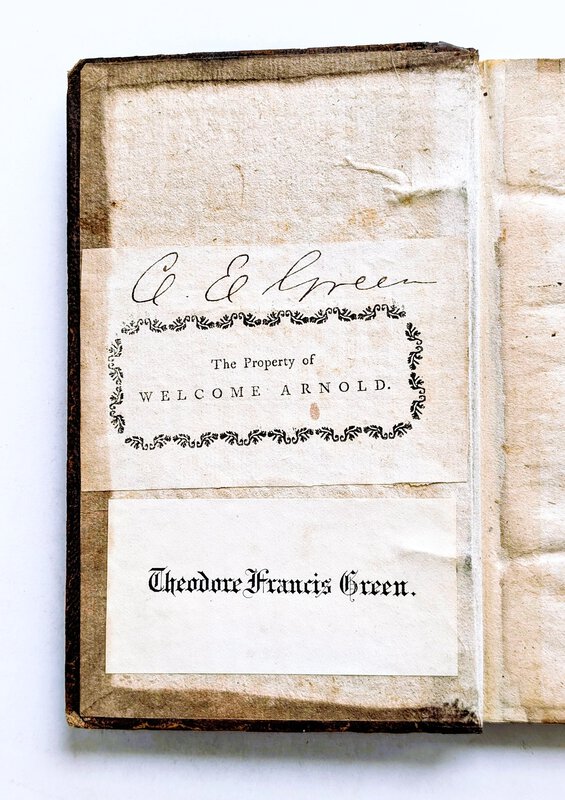 C. E. Green
The Property of
WELCOME ARNOLD.
Theodore Francis Green.